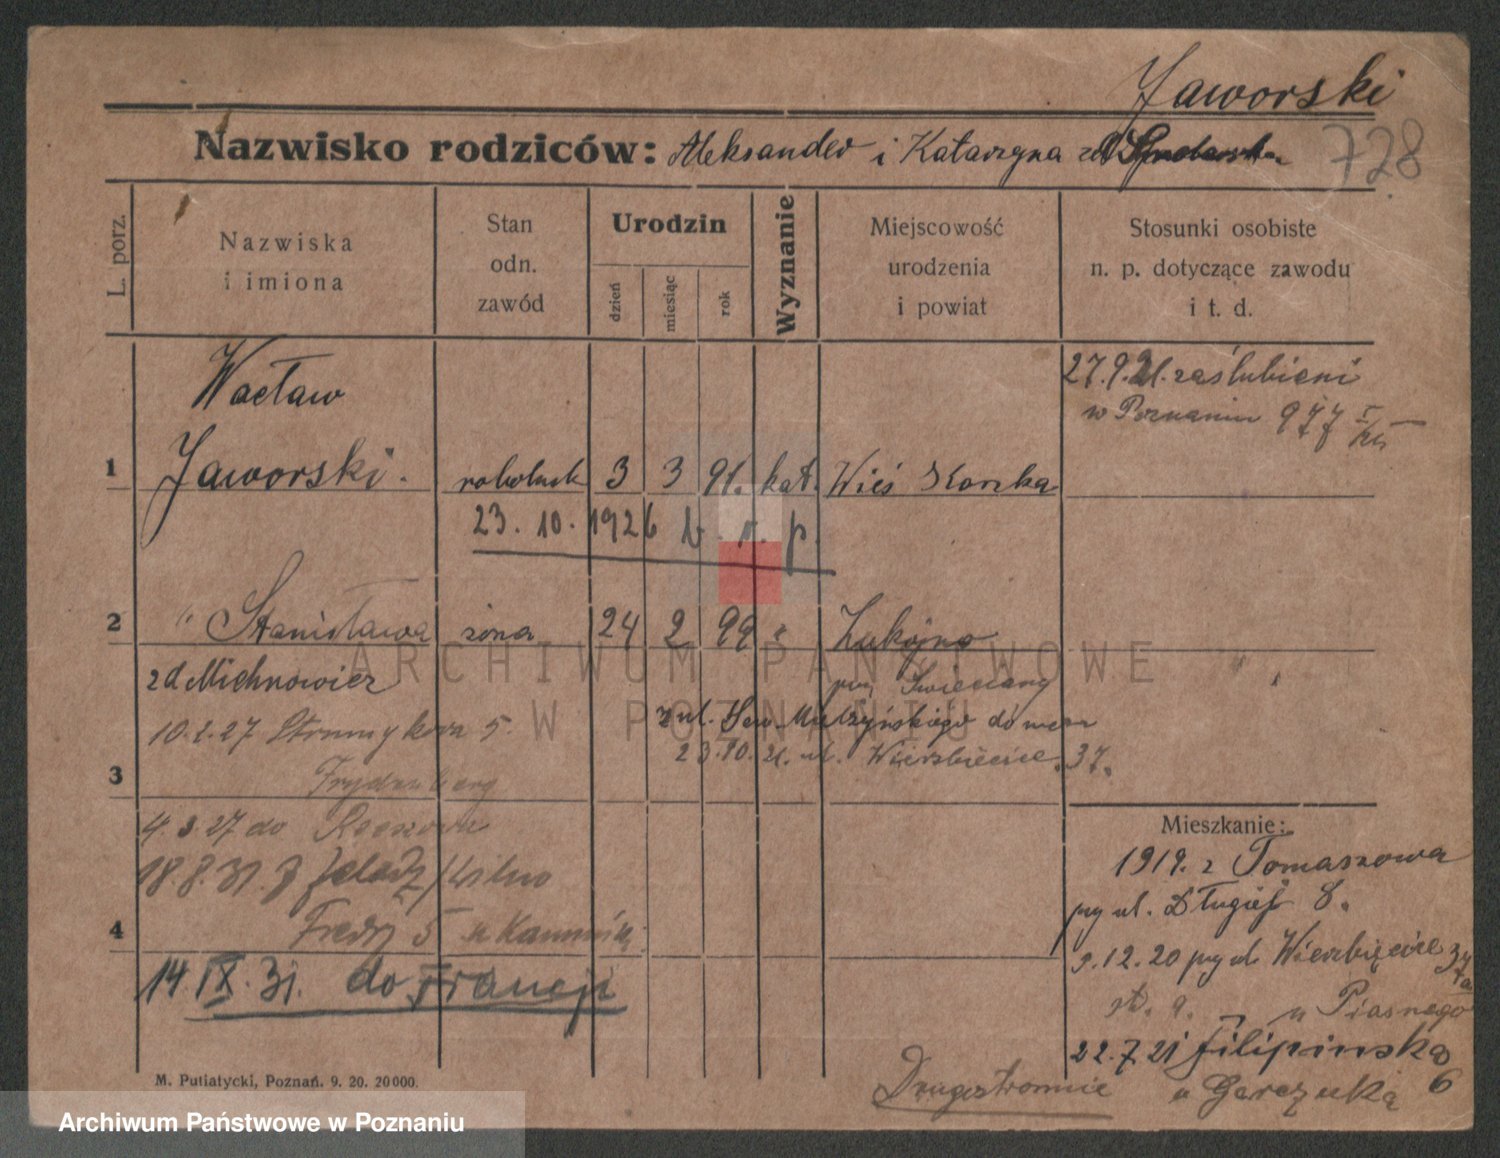 Jaworski
Nazwisko rodziców: Aleksander i Katarzyna zd
728
L. porz.
Nazwiska
i imiona
Stan
odn.
zawód
Urodzin
dzień
miesiąc
rok
Wyznanie
Miejscowość
urodzenia
i powiat
Stosunki osobiste
n. p. dotyczące zawodu
i t. d.
27.9.21. zaślubieni
w Poznaniu 977
Wacław
1 Jaworski. robotnik 3 3 91. kat. Wieś
23. 10. 1926 b. n. p.
2 " Stanisława żona 24 2 99 " Łukojno
zd Michnowicz
pow. Święciany
10.2.27 Strumykowa 5.
z ul. Sew. Mielżyńskiego do
23.10.21. ul. Wierzbięcice 37.
3
4.3.27 do
18.8.31. z /Wilno
4 Fredry 5 u
14 IX. 31. do Francji
Mieszkanie:
1919. z Tomaszowa
przy ul. Długiej 8.
9.12.20 przy ul. Wierzbięcice 37a
u Piasnego
22.7.21 Filipińska 6
u
Drugostronnie
M. Putiatycki, Poznań. 9. 20. 20000.
ARCHIWUM PAŃSTWOWE
W POZNANIU
Archiwum Państwowe w Poznaniu